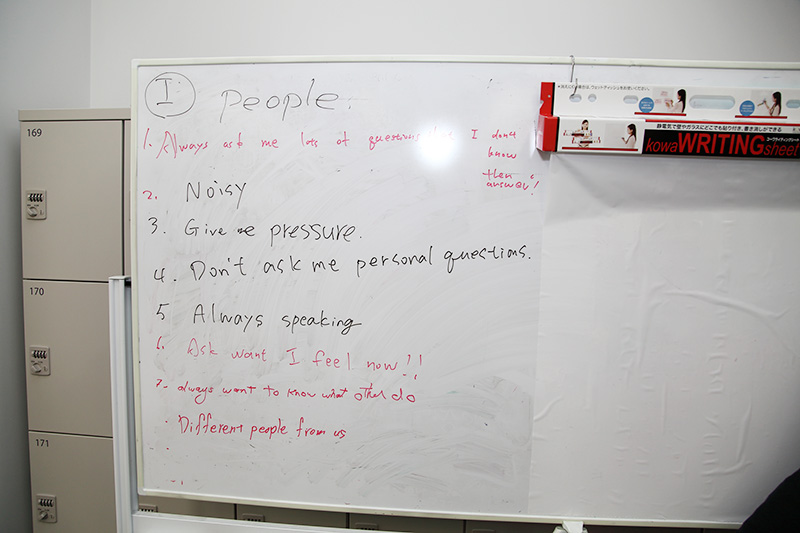 I people.
1. Always ask me lots of questions I don't
know
then
answer!
2. Noisy
3. Give me pressure.
4. Don't ask me personal questions.
5 Always speaking
6. Ask want I feel now!!
7- always want to know what other do
. Different people from us
169
170
171
静電気で壁やガラスにどこでも貼り付き、書き消しができる
kowa WRITING sheet
コーワライティングシート